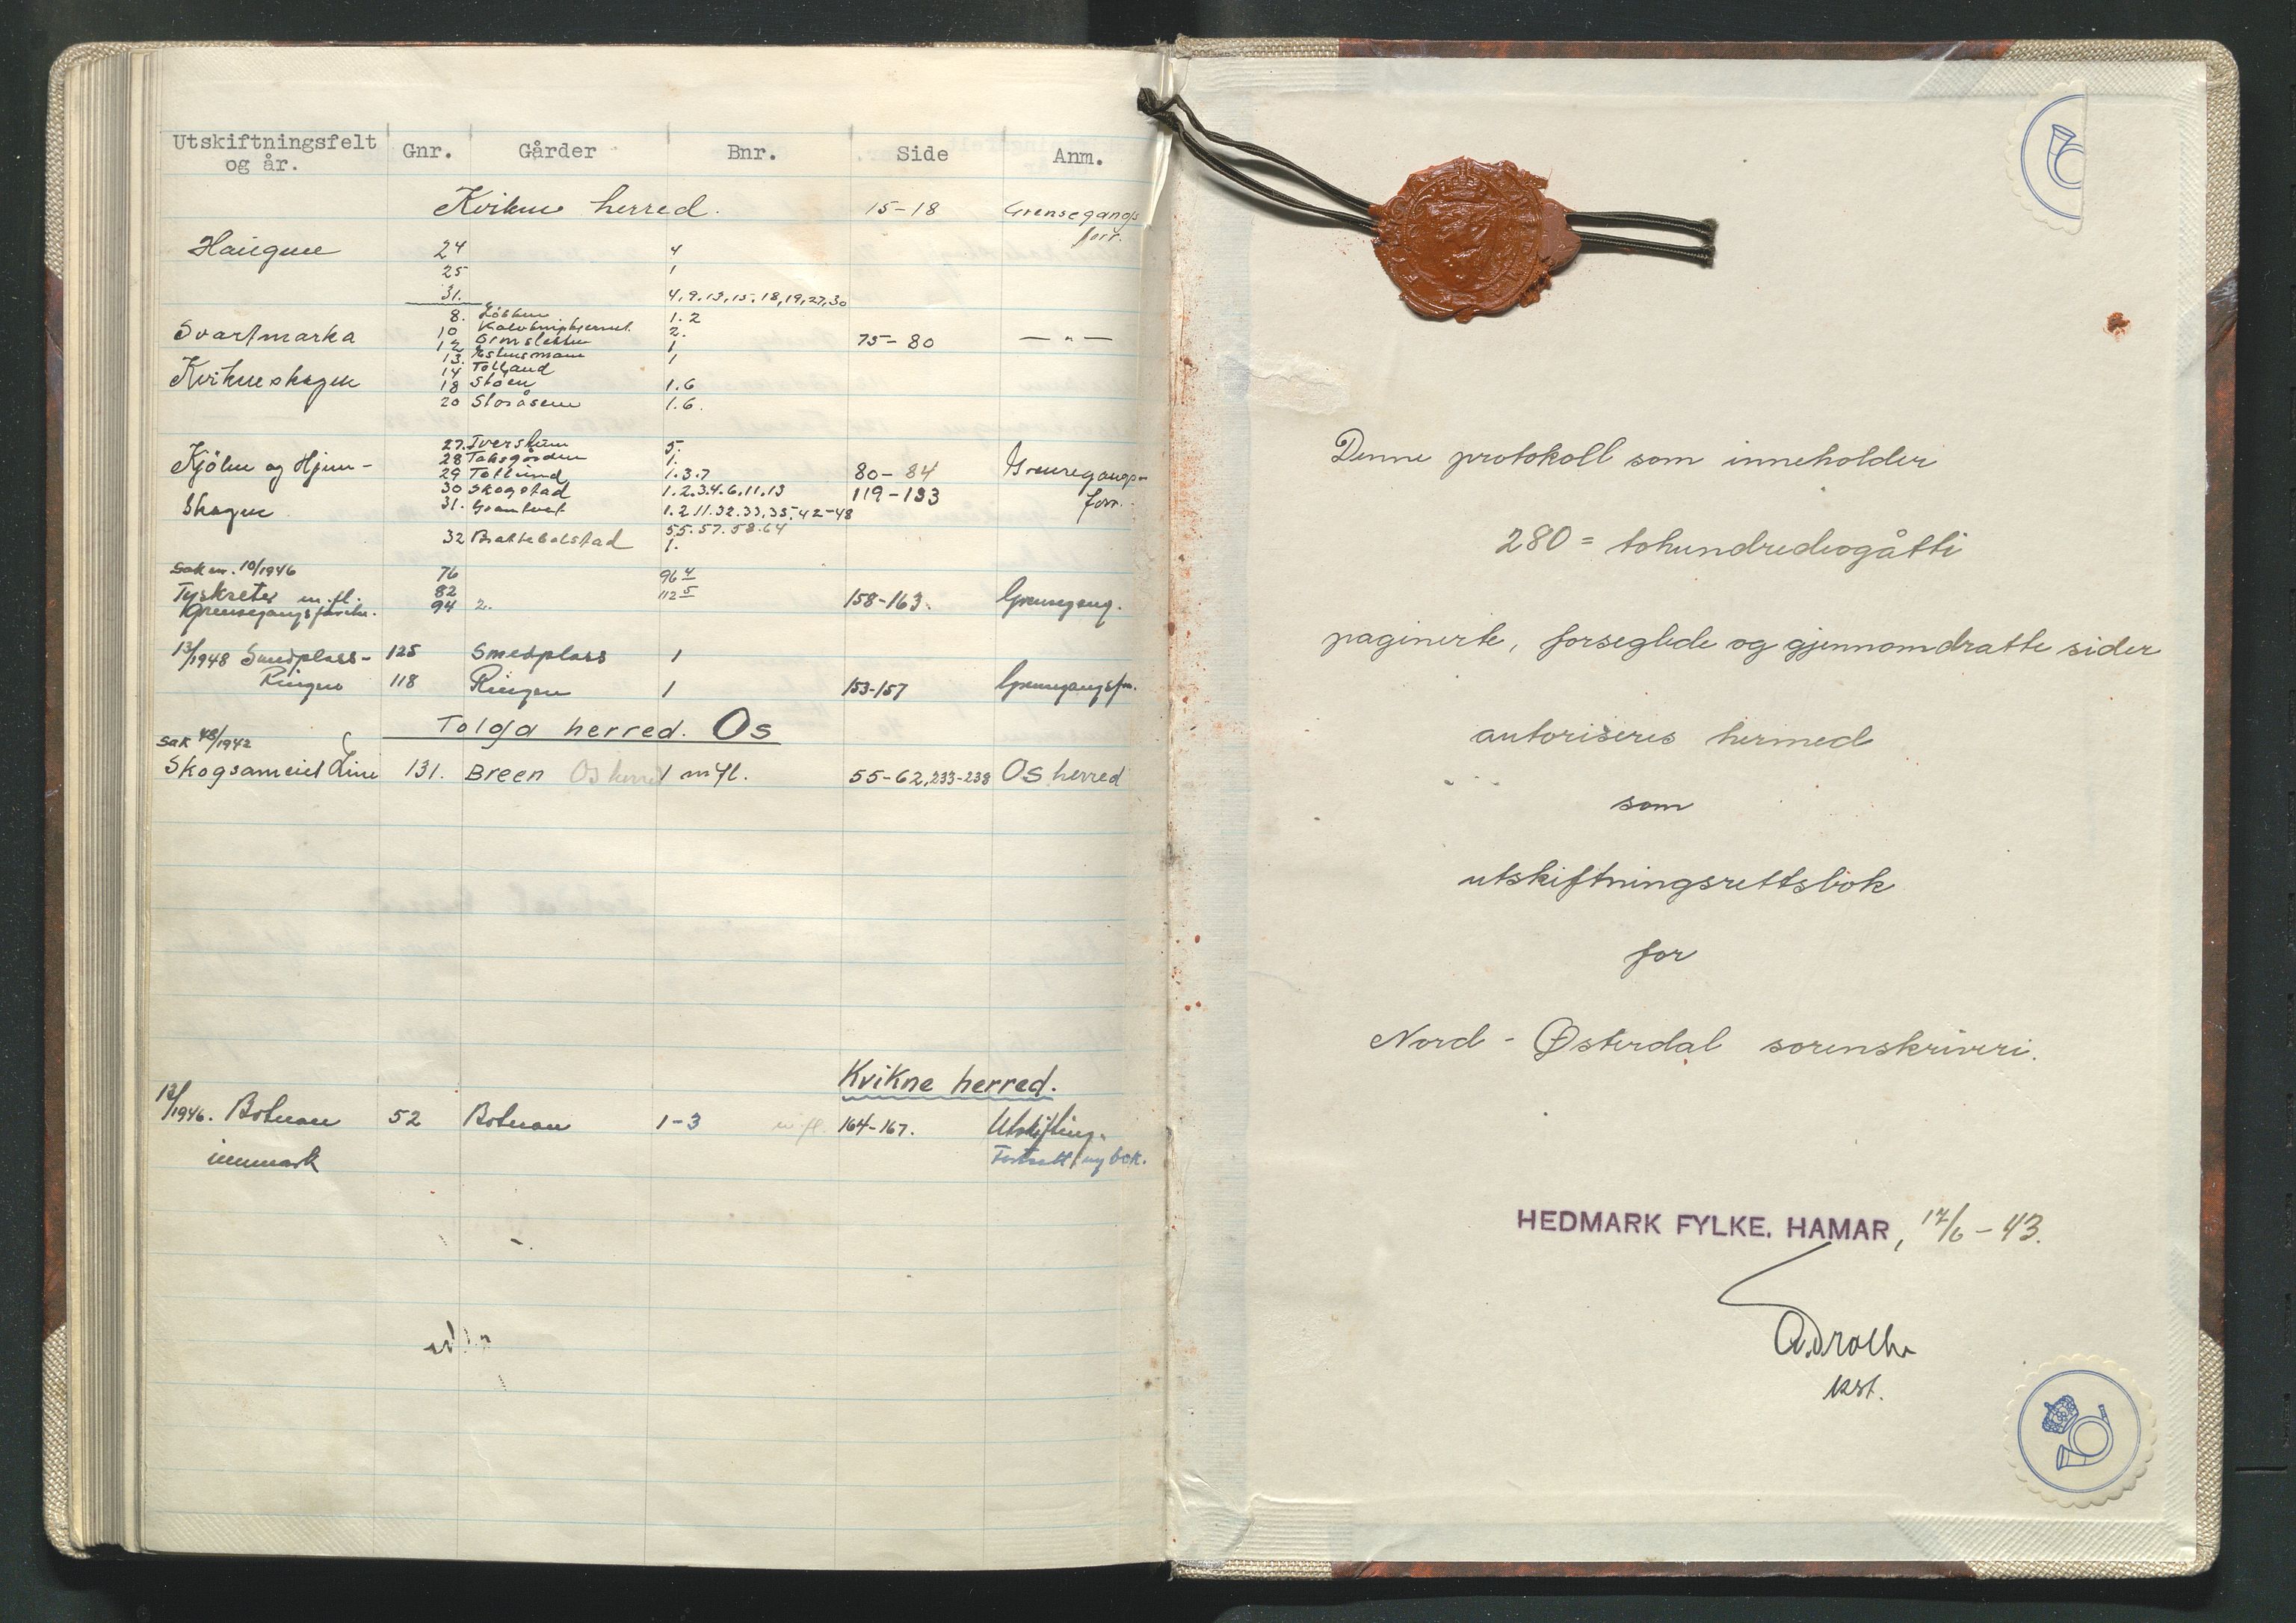 Utskiftningsfelt og år. Gnr. Gårder Bnr. Side Anm.
Kvikne herred. 15-18 Grensegangs
forr.
Haugene 24 4
25 1
31. 4,9,13,15,18,19,27,30
8. 1.2
10 2.
Svartmarka 12 1 75-80 — " —
13. 1
14 Tolland
Kvikneskogen 18 Stöen 1.6
20 Storåsen 1.6.
27. 5.
28 1.
Kjölen og Hjem- 29 1.3.7 80-84 Grensegangs-
30 Skogstad 1.2.3.4.6.11.13 119-133 forr.
Skogen 31. 1.2.11.32.33.35.42-48
55.57.58.64
32 1.
Sak nr. 10/1946 76 96 4
Tyskreter m.fl. 82 112 5
94 2. 158-163. Grensegang.
13/1948 Smedplass- 125 Smedplass 1
Ringen 118 Ringen 1 153-157
Tolga herred. Os
Sak 48/1942
Skogsameiet Line 131. Breen Os herred 1 m.fl. 55-62, 233-238 Os herred
Kvikne herred.
12/1946. 52 1-3 m.fl. 164-167. Utskifting.
innmark ny bok.
Denne protokoll som inneholder
280 = tohundredeogåtti
paginerte, forseglede og gjennomdratte sider
autoriseres hermed
som
utskiftningsrettsbok
for
Nord - Østerdal sorenskriveri.
HEDMARK FYLKE. HAMAR, 17/6 - 43.
kst.